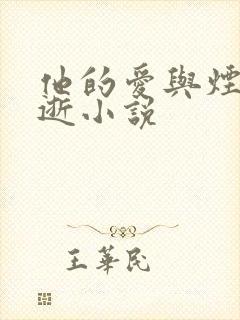 他的愛與煙
逝小說
王華民